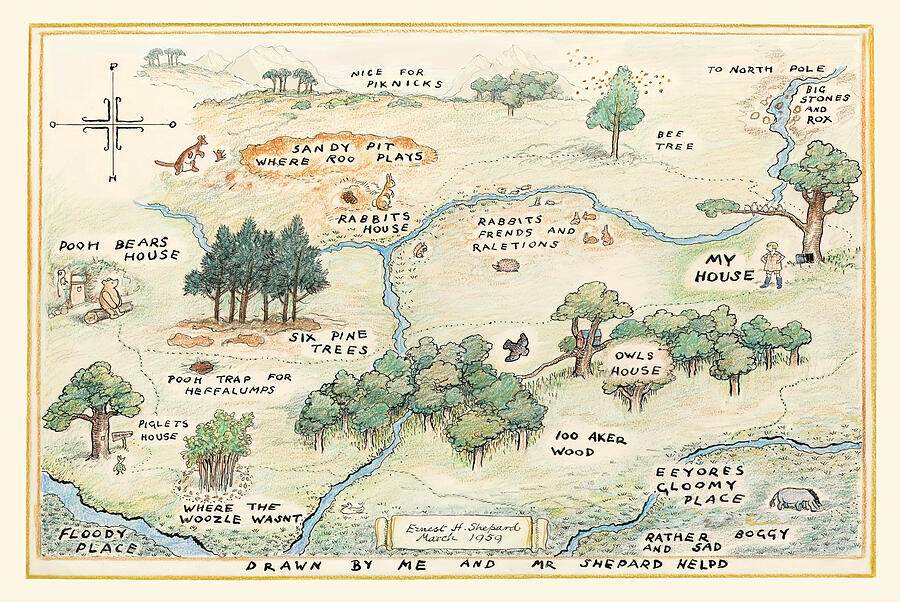 NICE FOR
PIKNICKS
TO NORTH POLE
BIG
STONES
AND
ROX
BEE
TREE
P
O
O
H
SANDY PIT
WHERE ROO PLAYS
RABBITS
HOUSE
RABBITS
FRENDS AND
RALETIONS
POOH BEARS
HOUSE
MY
HOUSE
SIX PINE
TREES
OWLS
HOUSE
POOH TRAP FOR
HEFFALUMPS
PIGLETS
HOUSE
100 AKER
WOOD
EEYORES
GLOOMY
PLACE
WHERE THE
WOOZLE WASNT
FLOODY
PLACE
RATHER BOGGY
AND SAD
Ernest H. Shepard
March 1959
DRAWN BY ME AND MR SHEPARD HELPD